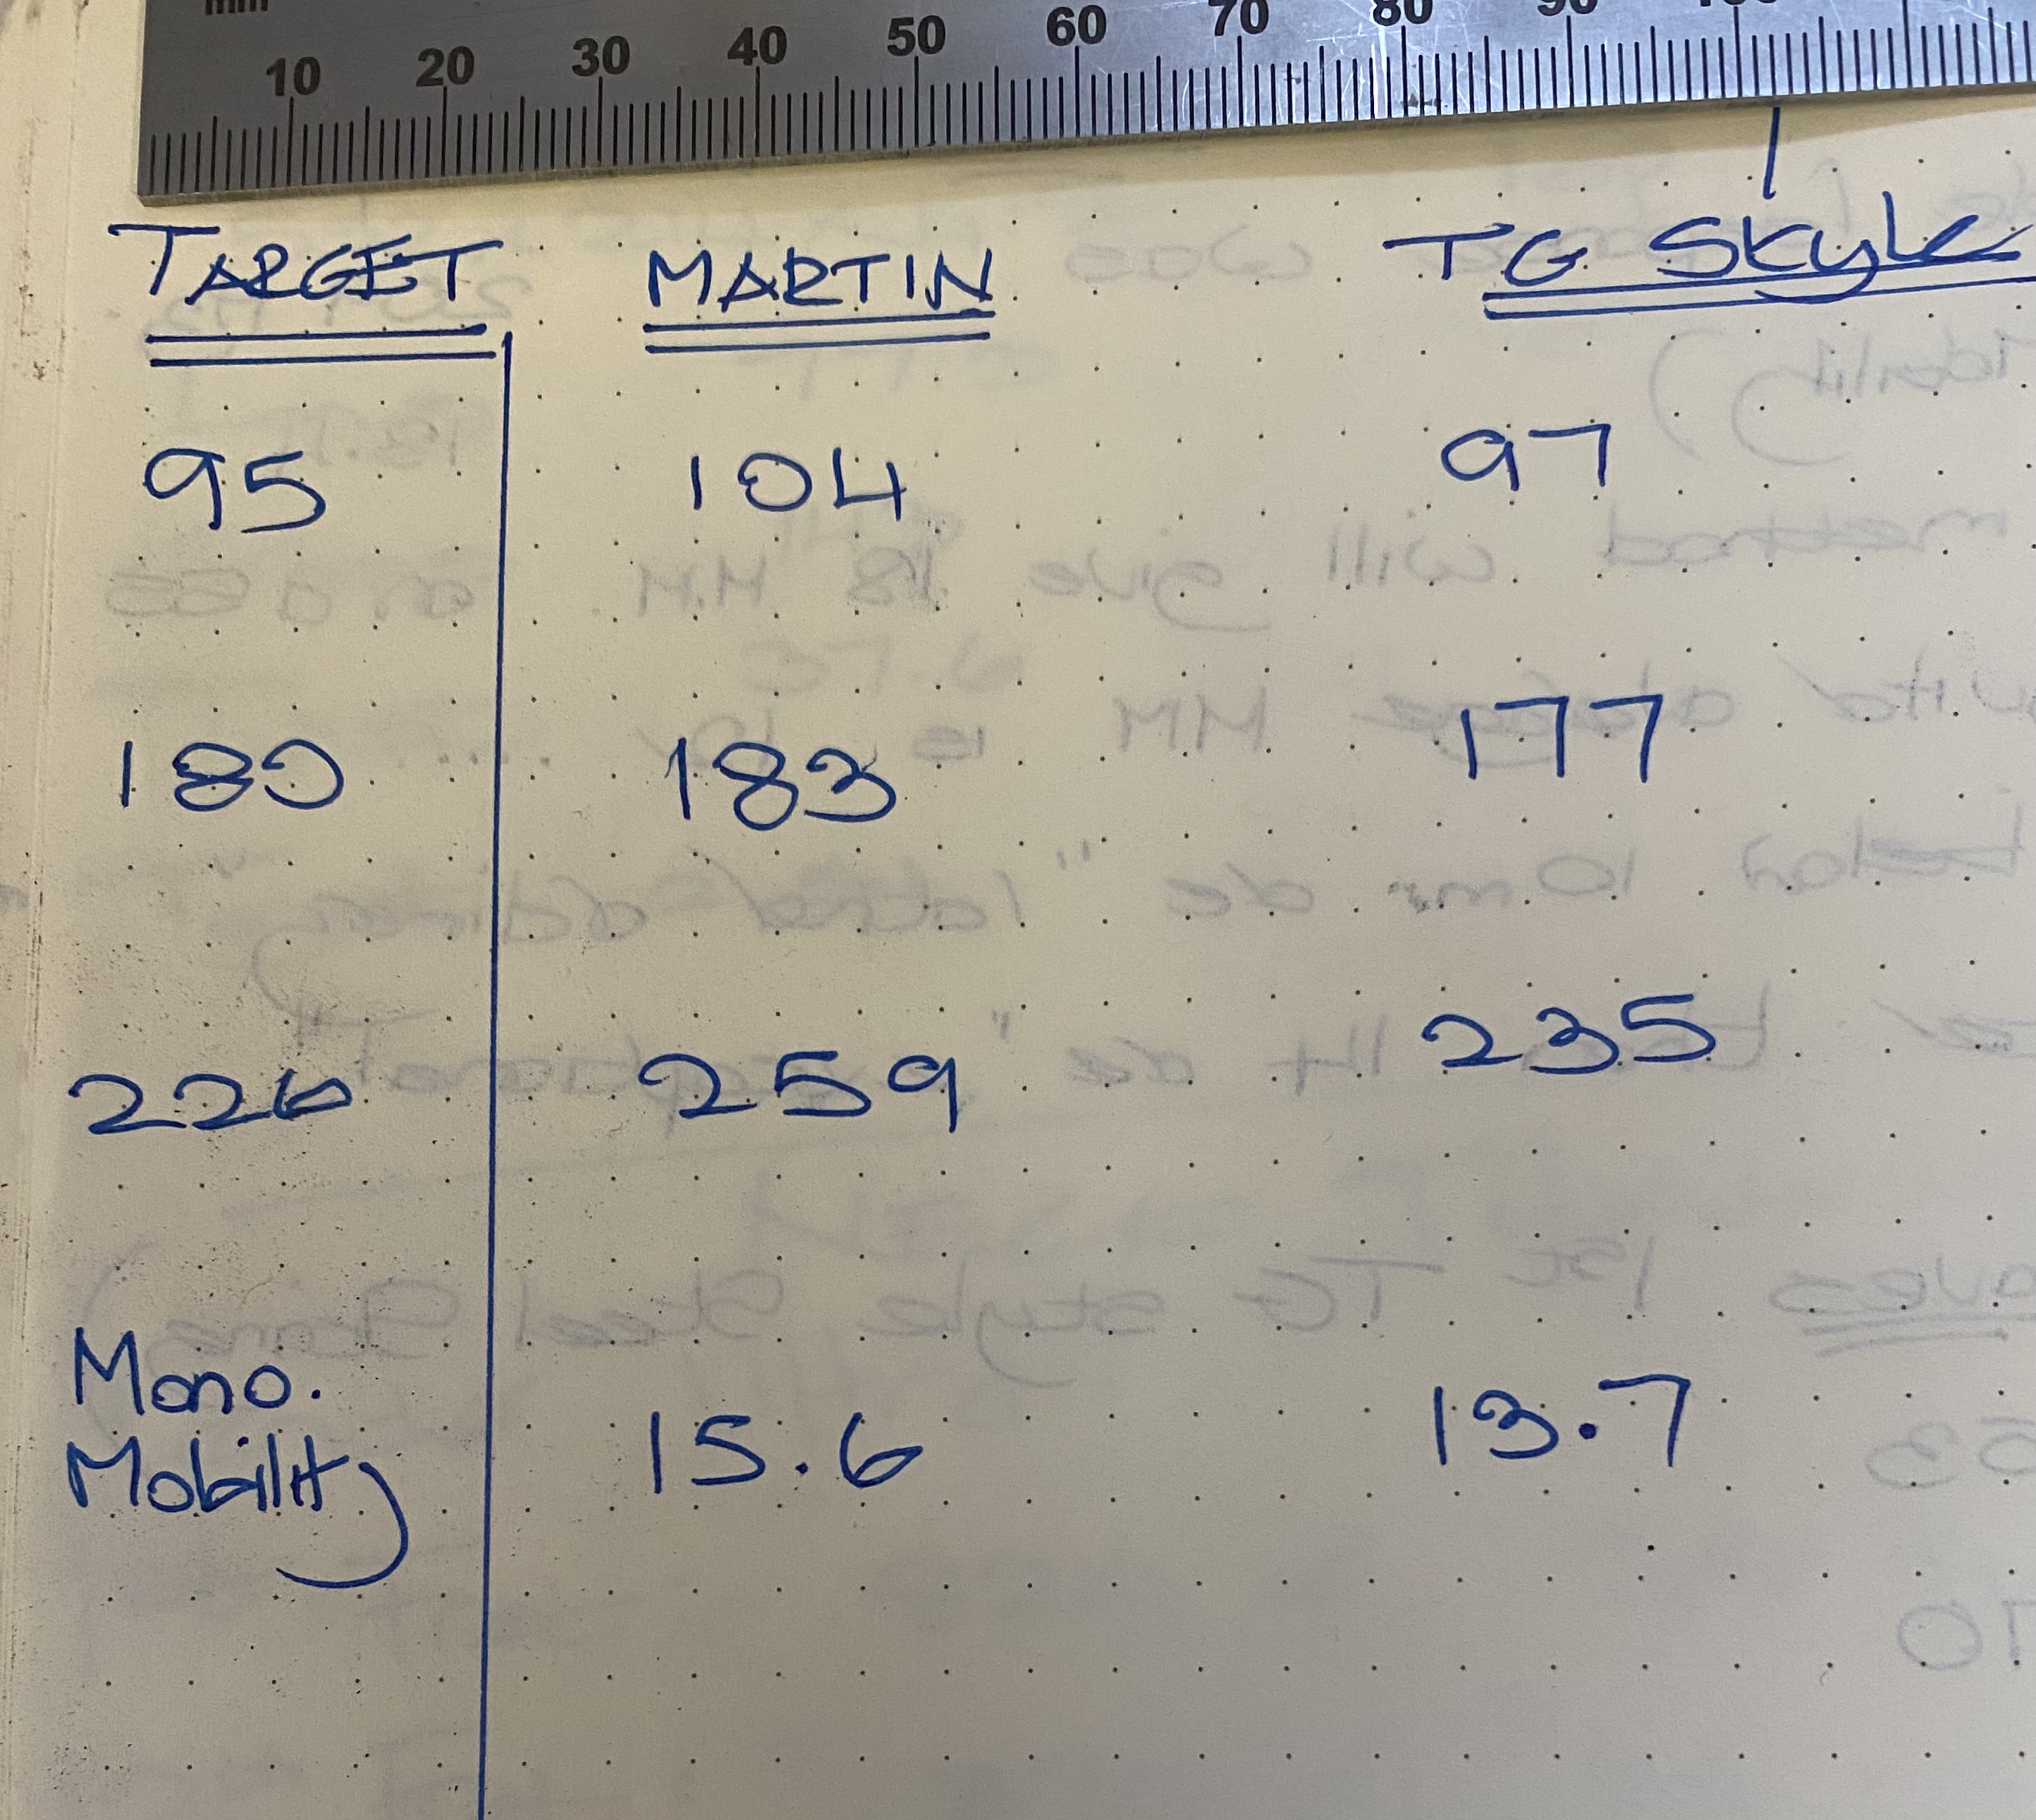 mm 10 20 30 40 50 60 70 80 90 100
TARGET MARTIN TG Style
95 104 97
180 183 177
226 259 235
Mono.
Mobility 15.6 13.7